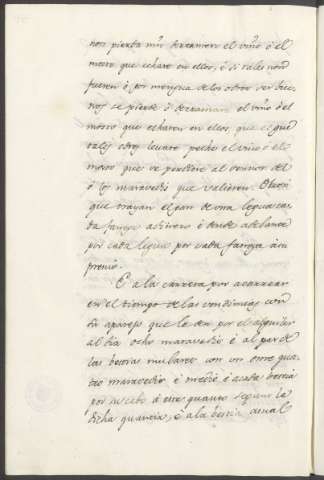 non pierda nin derramen el vino ó el
mosto que echare en ellos, é si tales non
fueren ó por mengua de los odres ser bue-
nos se pierde ó derraman el vino ó el
mosto que echaren en ellos, que el que
tales odres levare peche el vino ó el
mosto que se perdiere al Sennor del
ó los maravedis que valieren. Otrosi
que trayan el pan de una legua ca-
da fanega a dinero é dende adelante
por cada legua por cada fanega a su
precio.
E a la carrera por acarrear
en el tiempo de las vendimias con
su aparejo que le den por el alquiler
al dia ocho maravedis é al par de
las bestias mulares con un ome qua-
tro maravedis é medio é a cada bestia
por su cabo á este quanto segunt la
dicha quantia, é a la bestia asnal